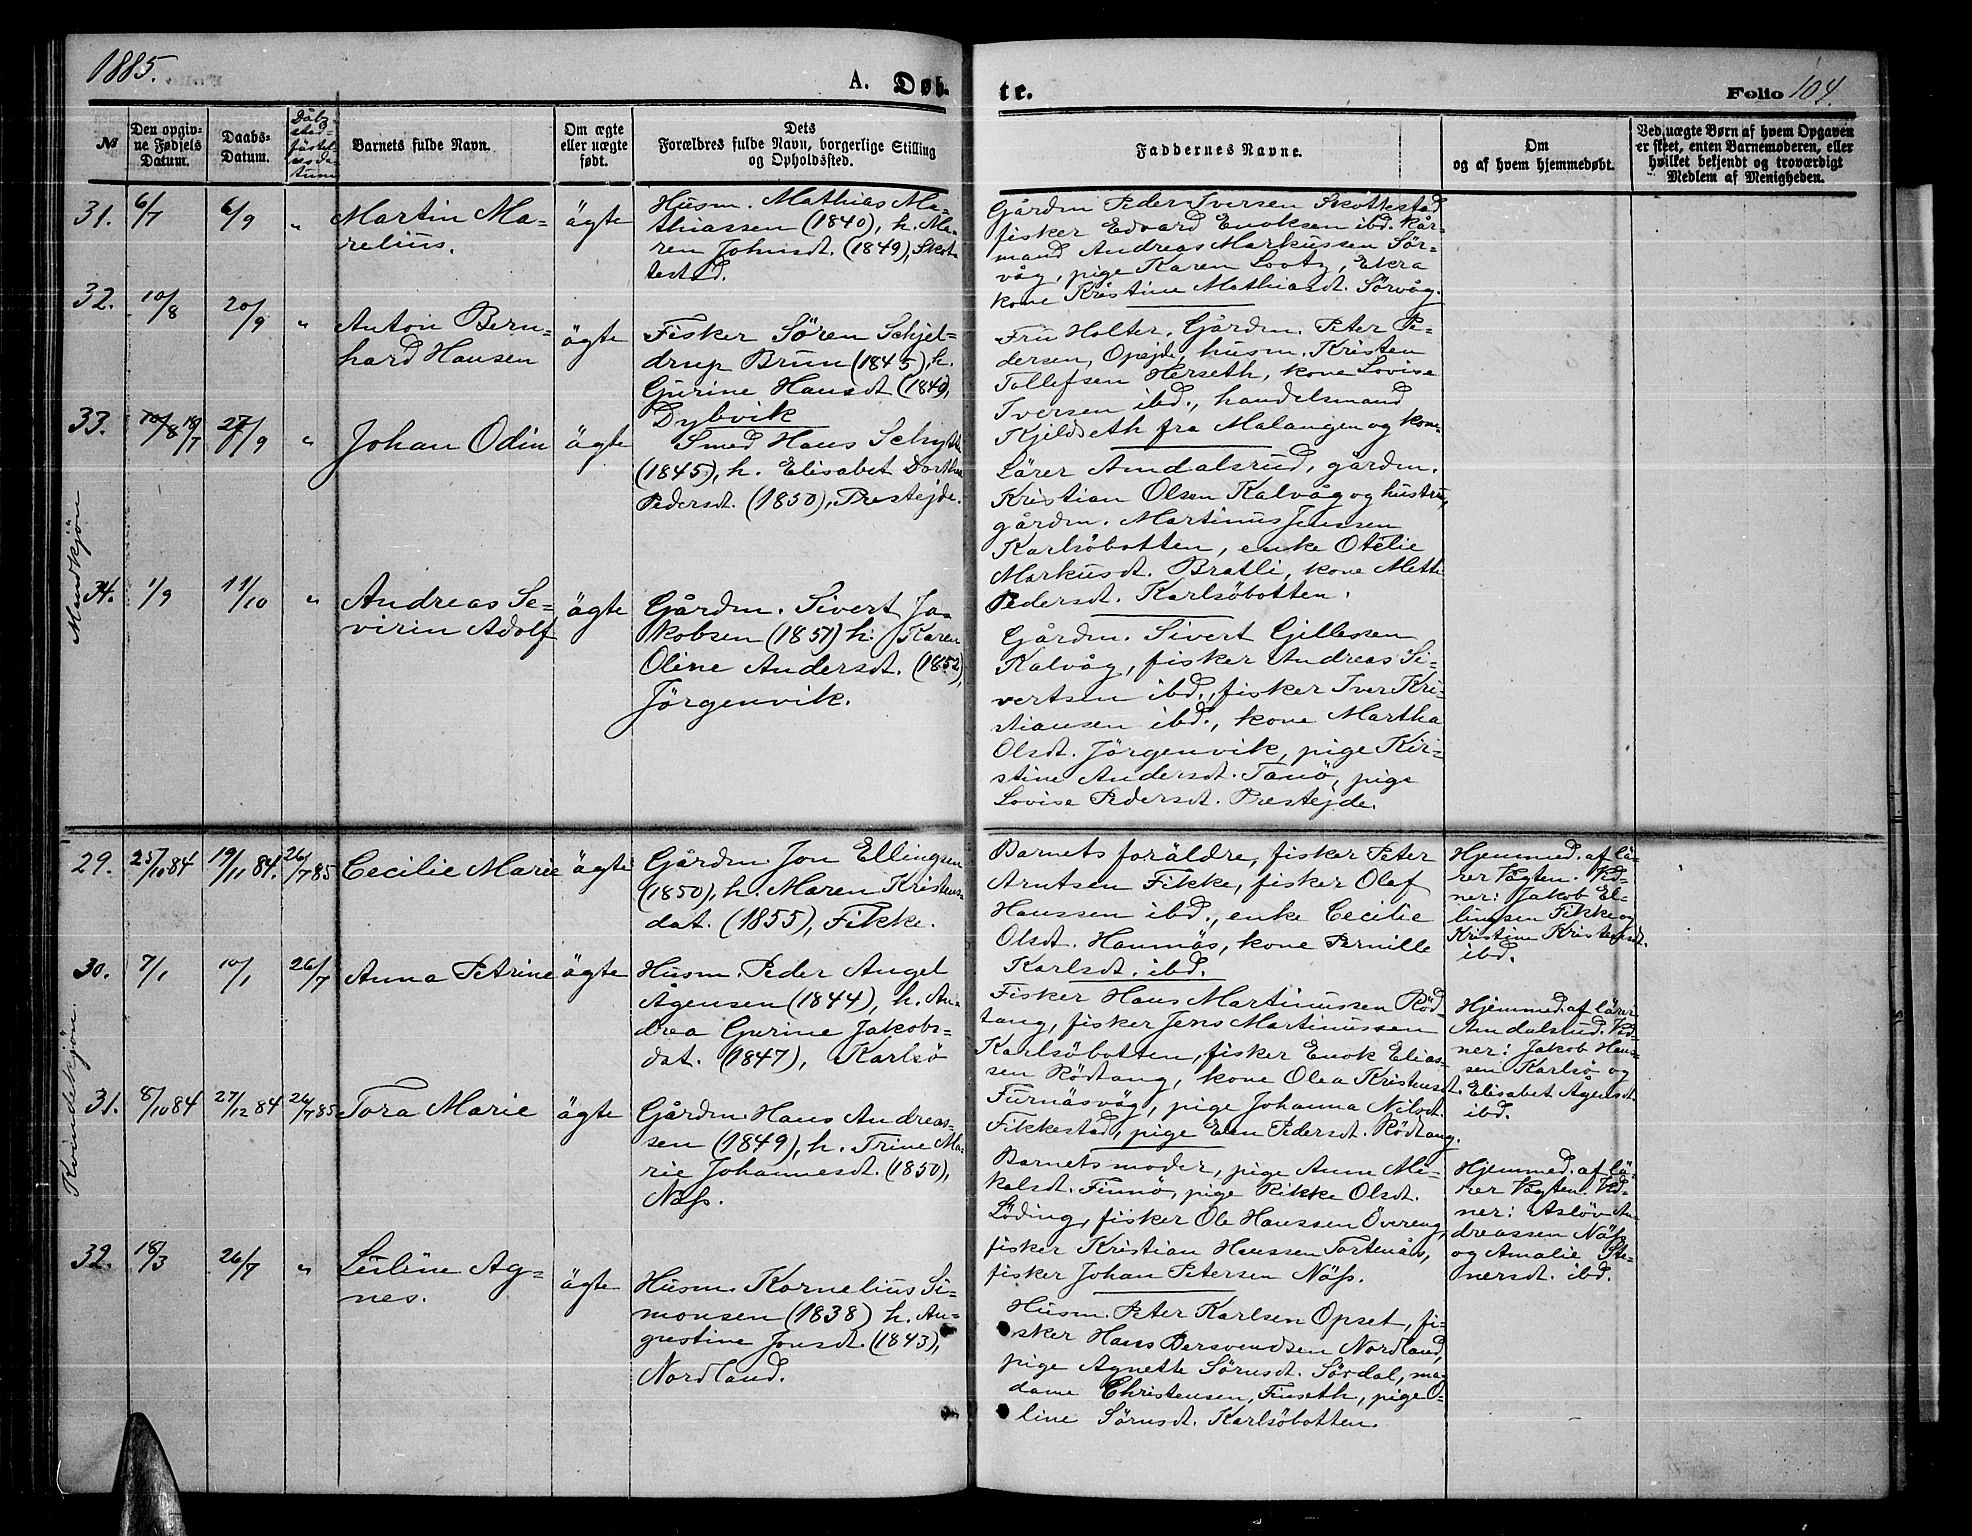 1885.
A. Døb-
te.
Folio 104.
№
Den opgiv-
ne Fødsels
Datum.
Daabs-
Datum.
Dåbs
stad-
fästel
sesda
tum
Barnets fulde Navn.
Om ægte
eller uægte
født.
Dets
Forældres fulde Navn, borgerlige Stilling
og Opholdssted.
Faddernes Navne.
Om
og af hvem hjemmedøbt.
Ved uægte Børn af hvem Opgaven
er skeet, enten Barnemoderen, eller
hvilket bekjendt og troværdigt
Medlem af Menigheden.
Mandkjön
31. 6/7 6/9 „ Martin Ma-
relius.
ägte
Husm. Mathias Ma-
thiassen (1840), h. Ma-
ren Johnsdt. (1849), Skot-
testad.
Gårdm Peder Iversen Skottestad
fisker Edvard Enoksen ibd. kår-
mand Andreas Markussen Sör-
våg, pige Karen Lootz, Ekra
kone Kristine Mathiasdt. Sörvåg.
32. 10/8 20/9 „ Anton Bern-
hard Hansen
ägte
Fisker Sören Schjel-
drup Brun (1845), h.
Gurine Hansdt (1840),
Dybvik
Fru Holter, Gårdm. Peter Pe-
dersen, Opejde, husm. Kristen
Tollefsen Herseth, kone Lovise
Iversen ibd., handelsmand
Kjeldseth fra Malangen og kone
33. 10/8 19/7 27/9 „ Johan Odin
ägte
Smed Hans Schytt
(1845), h. Elisabet Dorthea
Pedersdt. (1850), Prestejde.
Lärer Amdalsrud, gårdm.
Kristian Olsen Kalvåg og hustru,
gårdm. Martinus Jenssen
Karlsöbotten, enke Otelie
Markusdt. Bratli, kone Mette
Pedersdt. Karlsöbotten.
34. 1/9 11/10 „ Andreas Se-
virin Adolf
ägte
Gårdm. Sivert Ja-
kobsen (1851) h. Karen
Oline Andersdt. (1852),
Jörgenvik.
Gårdm. Sivert Gjillessen
Kalvåg, fisker Andreas Si-
vertsen ibd., fisker Iver Kri-
stiansen ibd., kone Martha
Olsdt. Jörgenvik, pige Kir-
stine Andersdt. Tanö, pige
Lovise Pedersdt. Prestejde.
Kvindekjön.
29. 25/10 84 19/11 84. 26/7 85 Cecilie Marie
ägte
Gårdm. Jon Ellingsen
(1850), h. Maren Kristens-
dat. (1855), Fikke.
Barnets foräldre, fisker Peter
Arntsen Fikke, fisker Olaf
Hanssen ibd., enke Cecilie
Olsdt. Hamnäs, kone Pernille
Karlsdt. ibd.
Hjemmed. af lä-
rer Vogten. Vid-
ner: Jakob El-
lingsen Fikke og
Kristine Kristensdt.
ibd.
30. 7/1 10/1 26/7 Anna Petrine
ägte
Husm. Peder Angel
Ågensen (1844), h. An-
drea Gurine Jakobs-
dat. (1847), Karlsö
Fisker Hans Martinussen Röd-
tang, fisker Jens Martinussen
Karlsöbotten, fisker Enok Elias-
sen Rödtang, kone Olea Kristensdt.
Furnäsvåg, pige Johanna Nilsdt.
Fikkestad, pige Elen Pedersdt. Rödtang.
Hjemmed. af lärer
Amdalsrud. Vid-
ner: Jakob Hans-
sen Karlsö og
Elisabet Ågensdt.
ibd.
31. 8/10 84 27/12 84 26/7 85 Tora Marie
ägte
Gårdm. Hans Andreas-
sen (1849), h. Trine Ma-
rie Johannesdt. (1850),
Näss.
Barnets moder, pige Anne Mi-
kalsdt. Finnö, pige Rikke Olsdt.
Löding, fisker Ole Hanssen Övereng,
fisker Kristian Hanssen Tortenås,
fisker Johan Petersen Näss.
Hjemmed. af lä-
rer Vogten. Vid-
ner: Aslöv An-
dreassen Näss
og Amalie Ste-
nersdt. ibd.
32. 18/3 26/7 „ Leiline Ag-
nes.
ägte
Husm. Kornelius Si-
monsen (1838) h. Au-
gustine Jonsdt. (1843),
Nordland.
Husm. Peter Karlsen Opset, fi-
sker Hans Bersvendsen Nordland,
pige Agnette Sörnsdt. Sördal, ma-
dame Christensen, Finseth, pige O-
line Sörnsdt. Karlsöbotten.